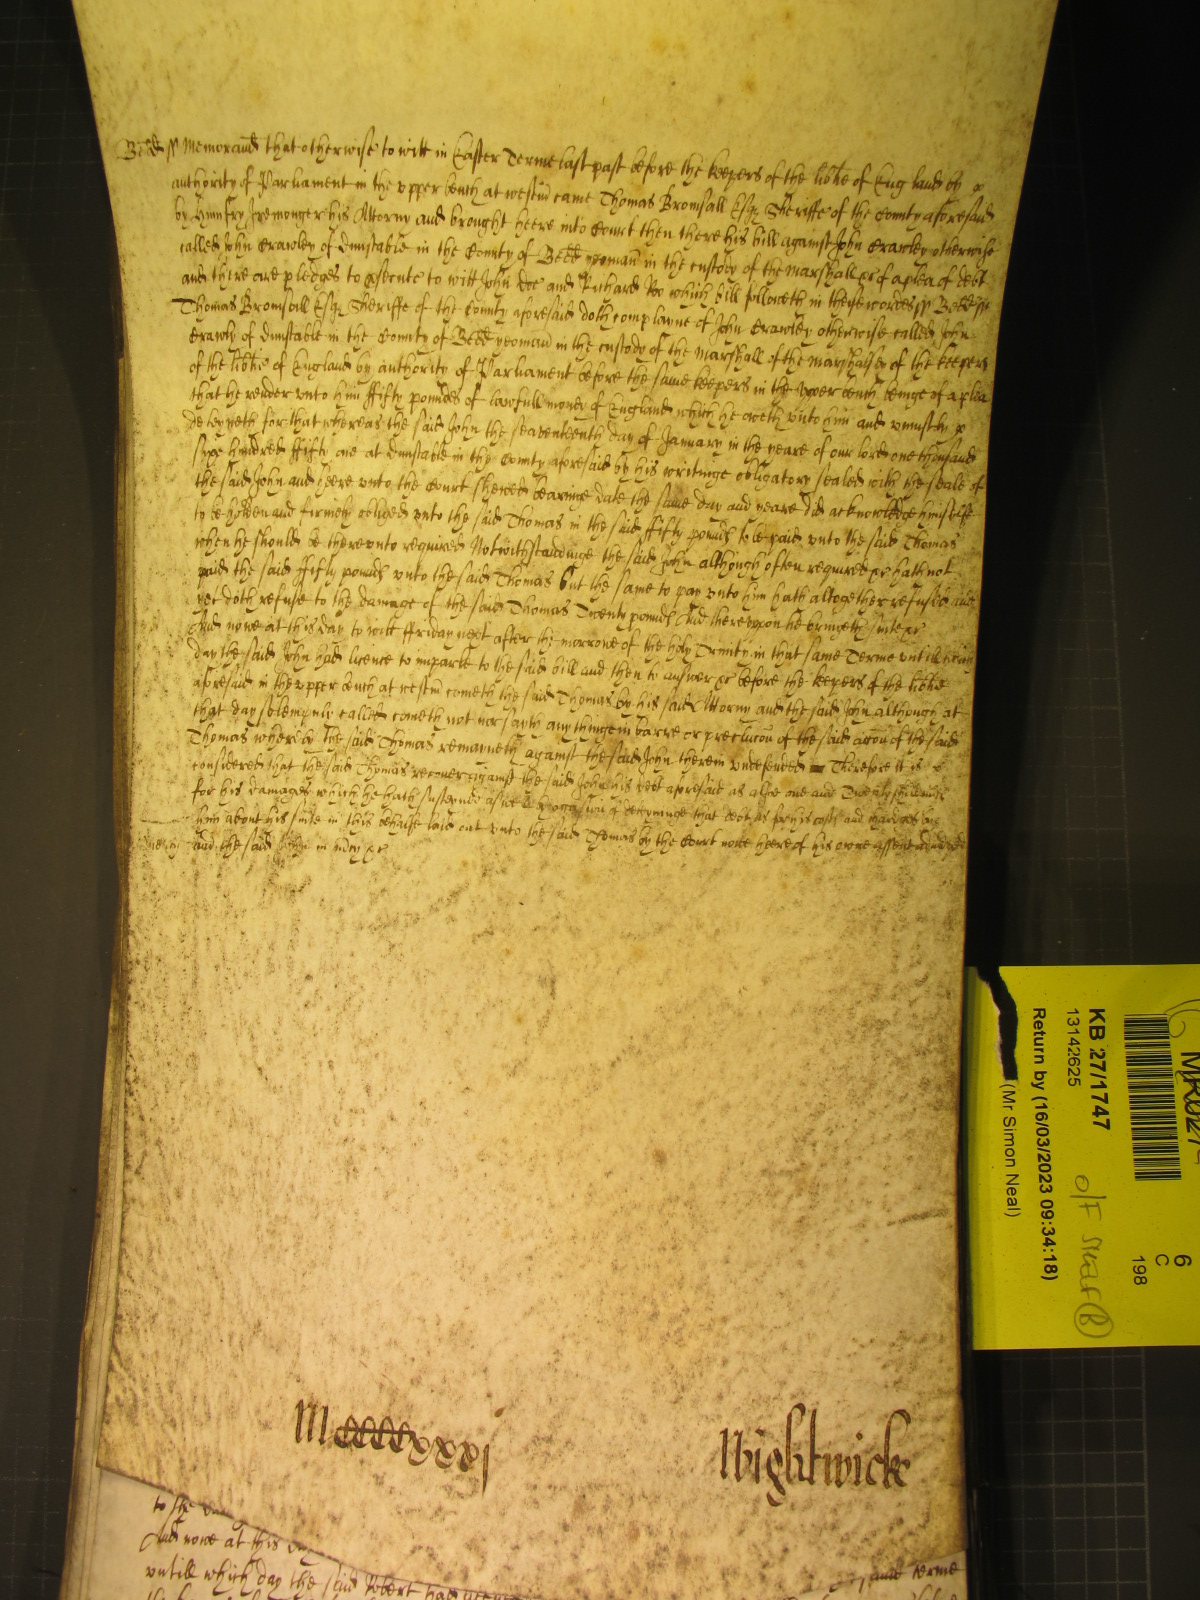 Bedd ss Memorand that otherwise to witt in Easter Terme last past before the keepers of the lib'tie of England by
authority of Parliament in the upper bench at westm came Thomas Bromsall Esq Sheriffe of the County aforesaid
by Humfry Iremonger his Attorny and brought heere into Court then there his bill against John Crawley otherwise
called John Crawley of Dunstable in the County of Bedd yeoman in the custody of the marshall &c of a plea of debt
and there are pledges to p'secute to witt John Doe and Richard Roe which bill followeth in these words ss Bedd ss
Thomas Bromsall Esq Sheriffe of the County aforesaid doth complayne of John Crawley otherwise called John
Crawly of Dunstable in the County of Bedd yeoman in the custody of the Marshall of the marshalsey of the keepers
of the lib'tie of England by authority of Parliament before the same keepers in the upper bench beinge of a plea
that he render unto him ffifty poundes of lawfull money of England which he oweth unto him and uniustly
deteyneth for that whereas the said John the seaventeenth day of January in the yeare of our lord one thousand
sixe hundred ffifty one at Dunstable in the County aforesaid by his writinge obligatory sealed with the seale of
the said John and heere unto the Court shewed bearinge date the same day and yeare did acknowledge himselfe
to be holden and firmely obliged unto the said Thomas in the said ffifty pounds to be paid unto the said Thomas
when he should be thereunto required Notwithstandinge the said John although often required &c hath not
paid the said ffifty pounds unto the said Thomas but the same to pay unto him hath altogether refused and
yet doth refuse to the damage of the said Thomas Twenty pounds And thereupon he bringeth suite &c
And nowe at this day to witt ffriday next after the morrowe of the holy Trinity in that same Terme untill which
day the said John had licence to imparle to the said bill and then to answer &c before the keepers of the lib'tie
aforesaid in the upper bench at westm cometh the said Thomas by his said Attorny and the said John although at
that day solempnly called cometh not nor sayth any thinge in barre or preclucon of the said accon of the said
Thomas whereby the said Thomas remayneth against the said John therein undefended Therefore it is
considered that the said Thomas recover against the said John his debt aforesaid as alsoe one and Twenty shillings
for his damages which he hath susteyned aswell by occasion of deteyninge that debt as for his costs and charges by
him about his suite in this behalfe laid out unto the said Thomas by the Court nowe heere of his owne assent adiudged
mercy And the said John in mercy &c
Mccccxxxj
Wightwick
to the
And nowe at this
untill which day the said Robert had
same terme
KB 27/1747
13142625
Return by (16/03/2023 09:34:18)
(Mr Simon Neal)
6
C
198